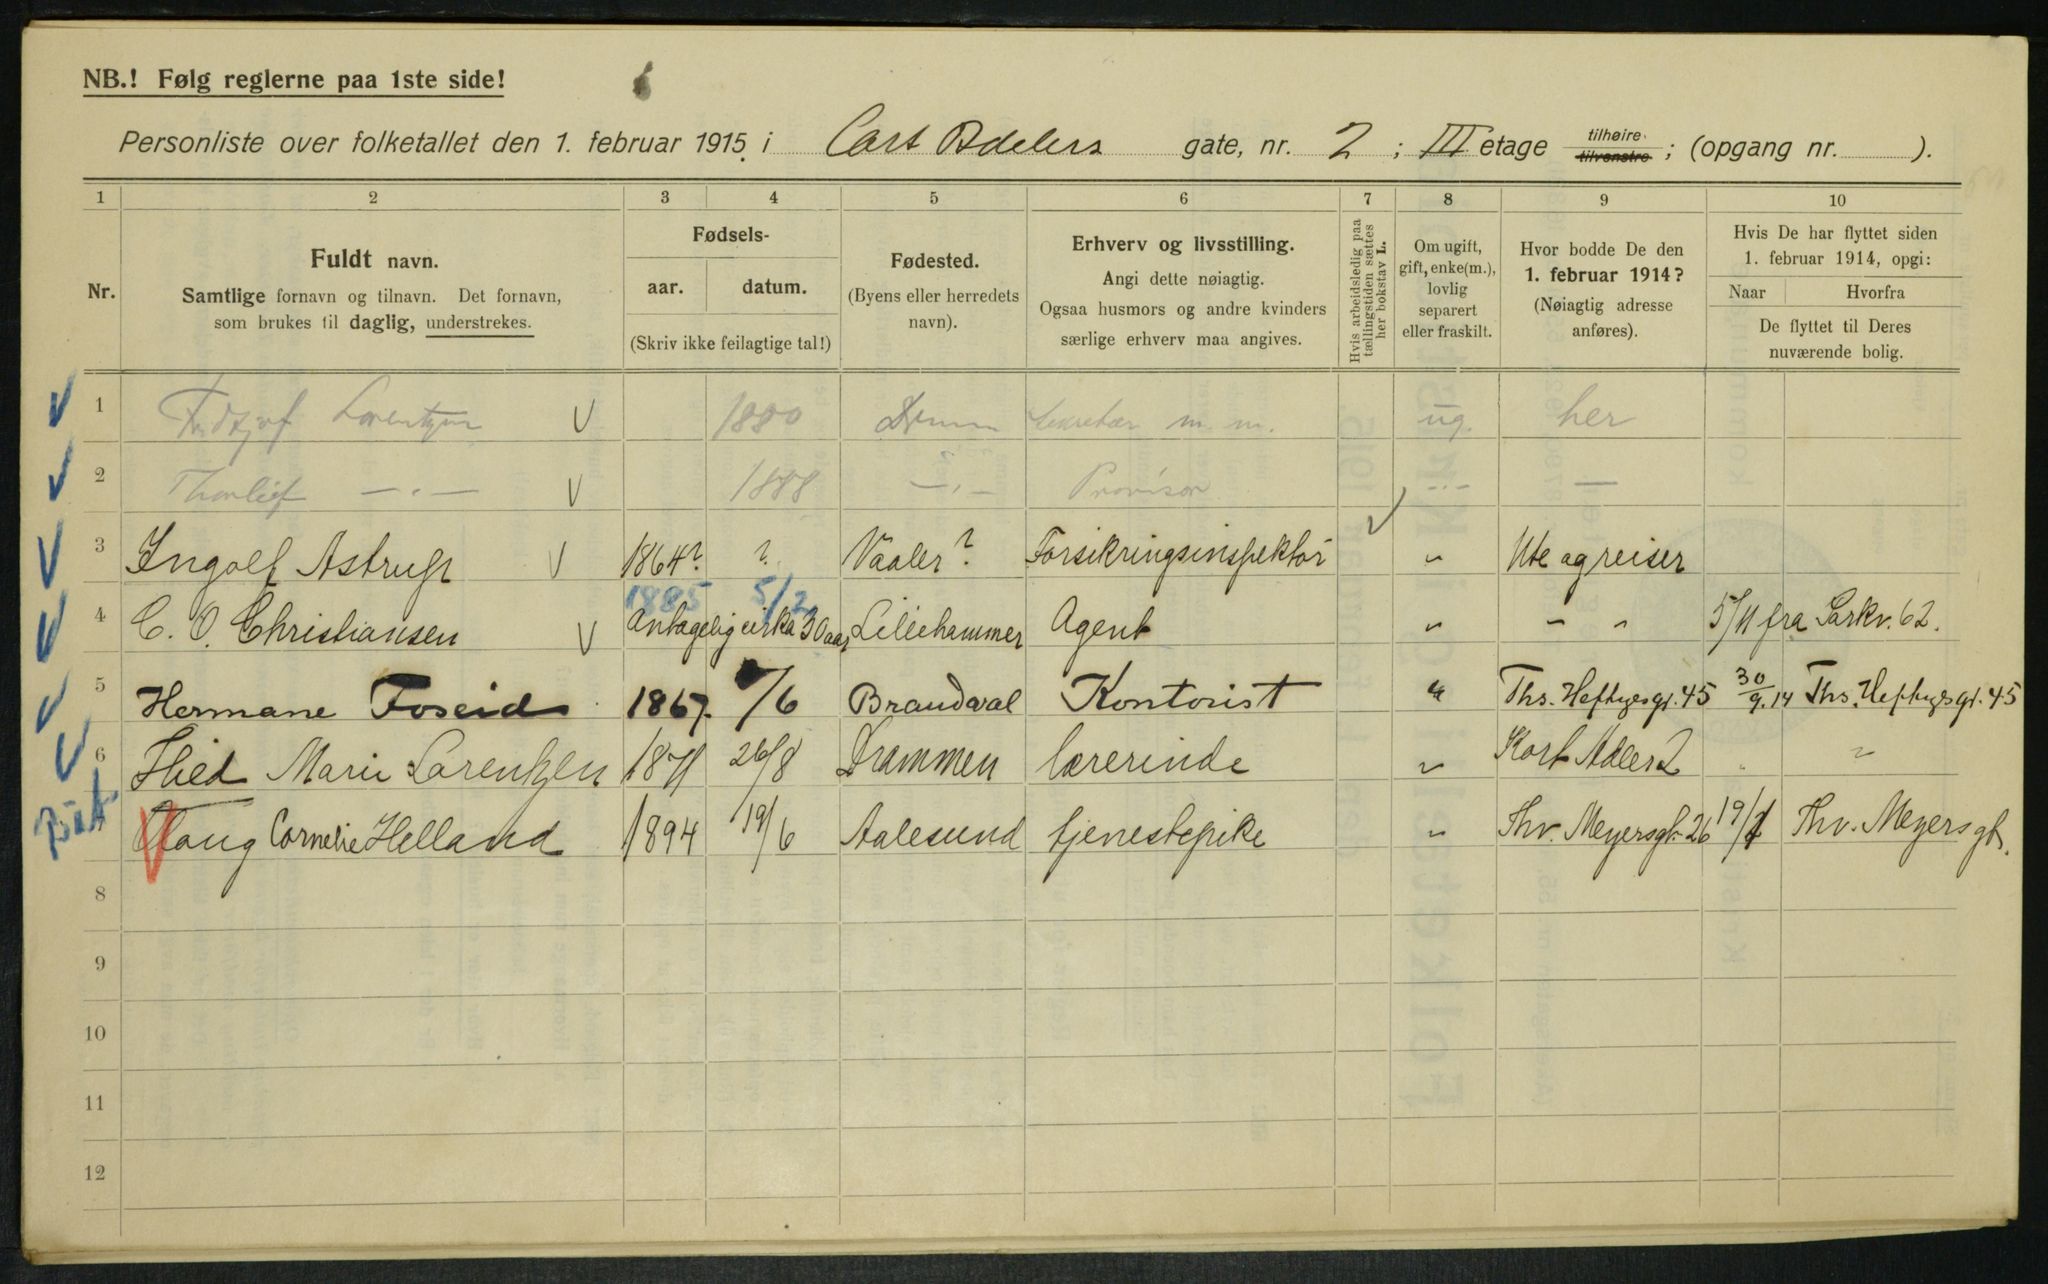 NB.! Følg reglerne paa 1ste side!
Personliste over folketallet den 1. februar 1915 i Cort Adelers gate, nr. 2 ; III etage tilhøire. tilvenstre ; (opgang nr. ).
1 2 3 4 5 6 7 8 9 10
Nr.
Fuldt navn.
Samtlige fornavn og tilnavn. Det fornavn,
som brukes til daglig, understrekes.
Fødsels-
aar. datum.
(Skriv ikke feilagtige tal!)
Fødested.
(Byens eller herredets
navn).
Erhverv og livsstilling.
Angi dette nøiagtig.
Ogsaa husmors og andre kvinders
særlige erhverv maa angives.
Hvis arbeidsledig paa
tællingstiden sættes
her bokstav L.
Om ugift,
gift, enke(m.),
lovlig
separert
eller fraskilt.
Hvor bodde De den
1. februar 1914?
(Nøiagtig adresse
anføres).
Hvis De har flyttet siden
1. februar 1914, opgi:
Naar Hvorfra
De flyttet til Deres
nuværende bolig.
1 Fridtjof Lorentzen 1880 Drmn Sekretær m. m. ug. her
2 Thorleif — „ — 1888 — „ — Provisor — „ —
3 Ingolf Astrup 1864? ? Vaaler? Forsikringsinspektør „ Ute og reiser
1885 5/2
4 C. O. Christiansen Antagelig cirka 30 aar Lillehammer Agent „ „ „ 5/11 fra Parkv. 62.
5 Hermane Foseid 1867. /6 Brandval Kontorist „ Ths. Heftyesgt. 45 30/9.14 Ths. Heftyesgt. 45
6 Hied Marie Lorentzen 1871 26/8 Drammen lærerinde „ Kort Adler 2 „ „
Olaug Cornelie Helland 1894 19/6 Aalesund tjenestepike „ Thv. Meyersgt. 26 19/ Thv. Meyers gt.
8
9
10
11
12